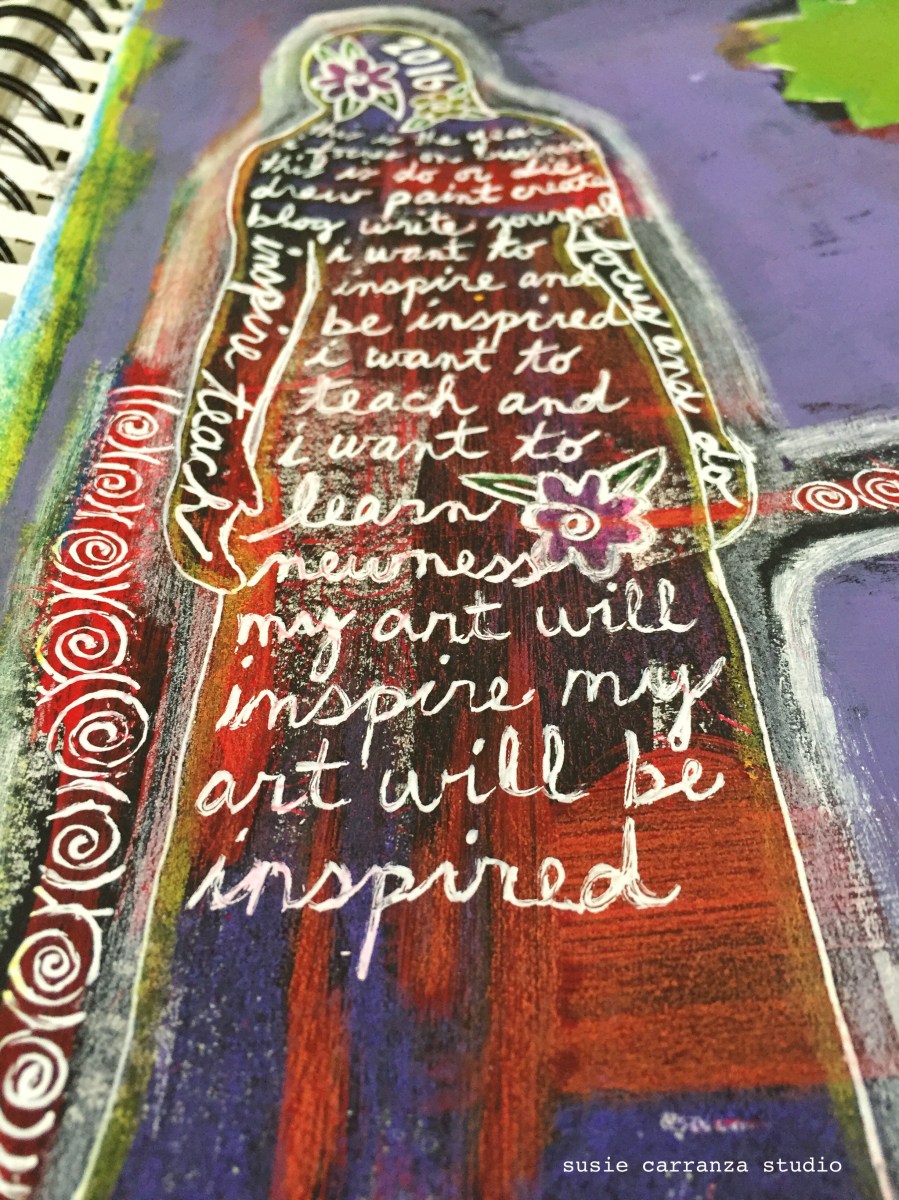 2016
this is the year
to focus on business
this is do or die
draw paint create
blog write journal
i want to
inspire and
be inspired
i want to
teach and
i want to
learn
newness
my art will
inspire my
art will be
inspired
inspire teach
focus and do
susie carranza studio